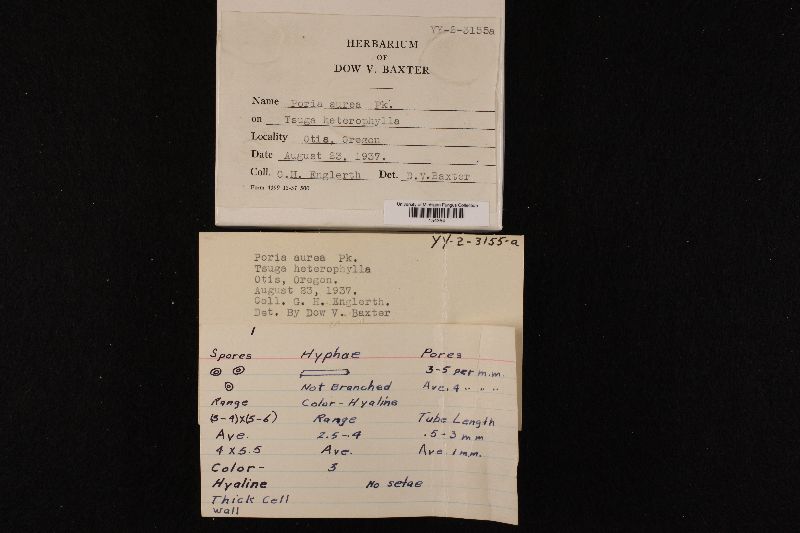 YY-2-3155a
HERBARIUM
OF
DOW V. BAXTER
Name Poria aurea Pk.
on Tsuga heterophylla
Locality Otis, Oregon
Date August 23, 1937.
Coll. G.H. Englerth Det. D.V.Baxter
University of Michigan Fungus Collection
YY-2-3155-a
Poria aurea Pk.
Tsuga heterophylla
Otis, Oregon.
August 23, 1937.
Coll. G. H. Englerth.
Det. By Dow V. Baxter
1
Spores Hyphae Pores
3-5 per m.m.
Not Branched Ave. 4 " " "
Range Color-Hyaline
(3-4)x(5-6) Range Tube Length
Ave. 2.5-4 .5-3 mm
4 x 5.5 Ave. Ave 1 mm.
Color- 3
Hyaline No setae
Thick Cell
wall